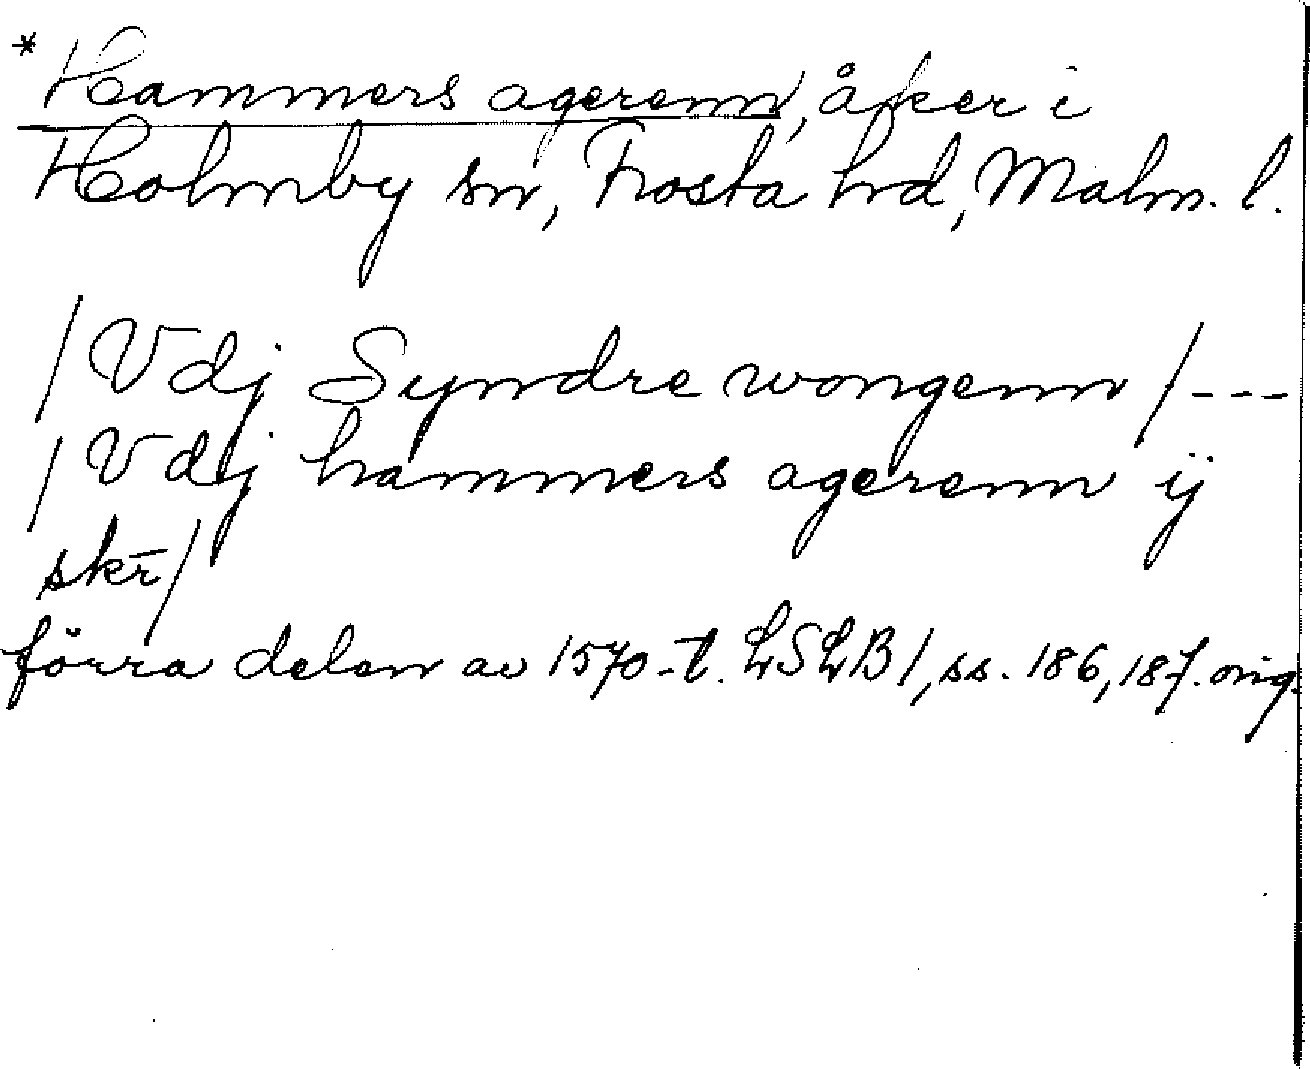 *Hammers agerenn, åker i
Holmby sn, Frosta hrd, Malm. l.
/Vdj Syndre wongenn/---
/Vdj hammers agerenn ij
skr̄/
förra delen av 1570-t. LSLB1, ss. 186, 187. orig.